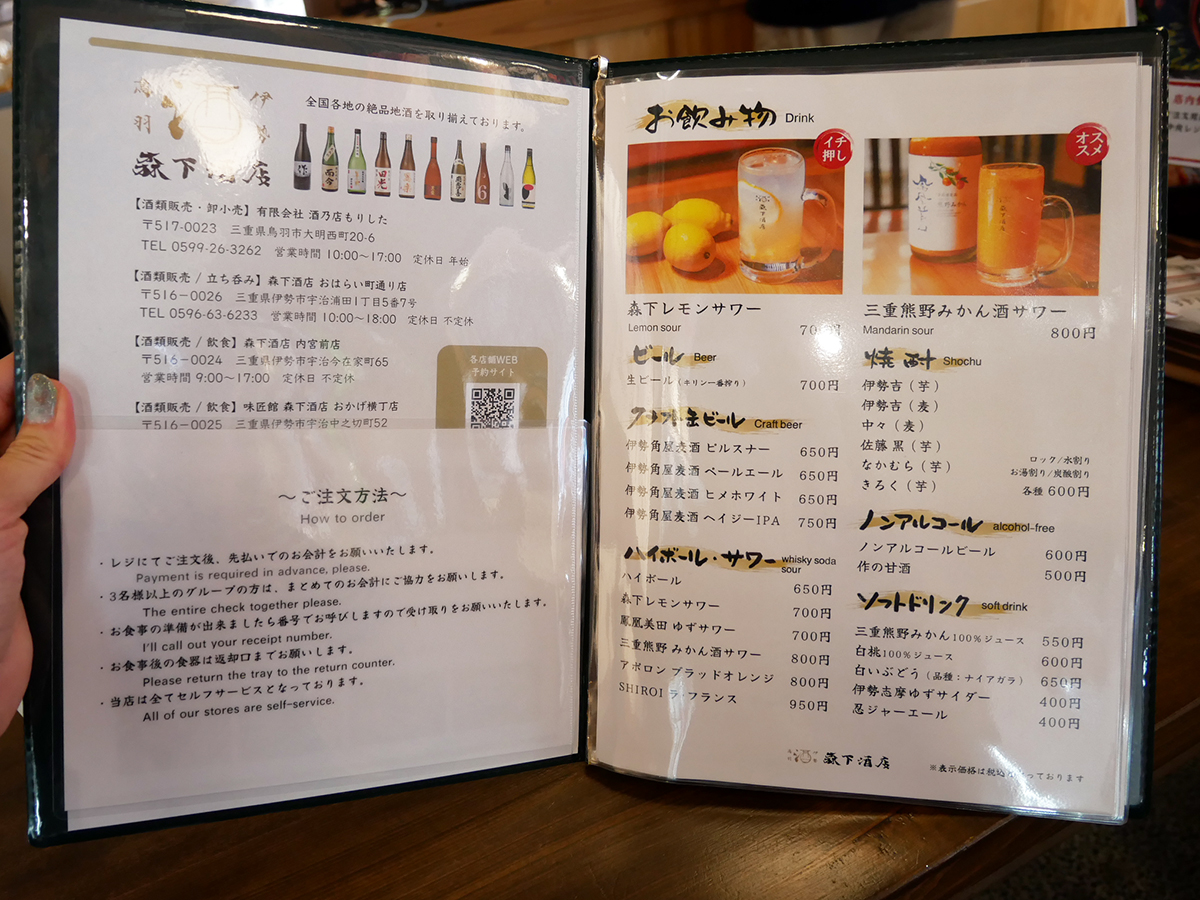 伊勢
志羽
森下酒店
全国各地の絶品地酒を取り揃えております。
【酒類販売・卸小売】有限会社 酒乃店もりした
〒517-0023　三重県鳥羽市大明西町20-6
TEL 0599-26-3262　営業時間 10:00〜17:00　定休日 年始
【酒類販売 / 立ち呑み】森下酒店 おはらい町通り店
〒516-0026　三重県伊勢市宇治浦田1丁目5番7号
TEL 0596-63-6233　営業時間 10:00〜18:00　定休日 不定休
【酒類販売 / 飲食】森下酒店 内宮前店
〒516-0024　三重県伊勢市宇治今在家町65
営業時間 9:00〜17:00　定休日 不定休
【酒類販売 / 飲食】味匠館 森下酒店 おかげ横丁店
〒516-0025　三重県伊勢市宇治中之切町52
各店舗WEB
予約サイト
〜ご注文方法〜
How to order
・レジにてご注文後、先払いでのお会計をお願いいたします。
Payment is required in advance, please.
・3名様以上のグループの方は、まとめてのお会計にご協力をお願いします。
The entire check together please.
・お食事の準備が出来ましたら番号でお呼びしますので受け取りをお願いいたします。
I'll call out your receipt number.
・お食事後の食器は返却口までお願いします。
Please return the tray to the return counter.
・当店は全てセルフサービスとなっております。
All of our stores are self-service.
お飲み物 Drink
イチ押し
オススメ
森下レモンサワー
Lemon sour 700円
三重熊野みかん酒サワー
Mandarin sour 800円
ビール Beer
生ビール（キリン一番搾り） 700円
クラフト缶ビール Craft beer
伊勢角屋麦酒 ピルスナー 650円
伊勢角屋麦酒 ペールエール 650円
伊勢角屋麦酒 ヒメホワイト 650円
伊勢角屋麦酒 ヘイジーIPA 750円
ハイボール・サワー whisky soda sour
ハイボール 650円
森下レモンサワー 700円
鳳凰美田 ゆずサワー 700円
三重熊野 みかん酒サワー 800円
アポロン ブラッドオレンジ 800円
SHIROI ラ・フランス 950円
焼酎 Shochu
伊勢吉（芋）
伊勢吉（麦）
中々（麦）
佐藤 黒（芋）
なかむら（芋）
きろく（芋）
ロック/水割り
お湯割り/炭酸割り
各種 600円
ノンアルコール alcohol-free
ノンアルコールビール 600円
作の甘酒 500円
ソフトドリンク soft drink
三重熊野みかん100%ジュース 550円
白桃100%ジュース 600円
白いぶどう（品種：ナイアガラ） 650円
伊勢志摩ゆずサイダー 400円
忍ジャーエール 400円
森下酒店
※表示価格は税込となっております